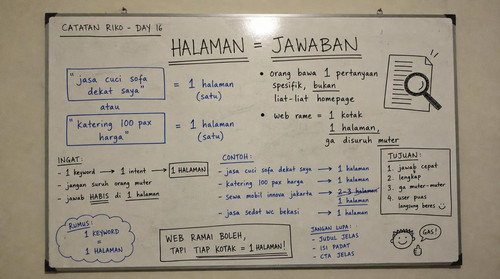 CATATAN RIKO - DAY 16
HALAMAN = JAWABAN
"jasa cuci sofa
dekat saya"
= 1 halaman
(satu)
atau
"katering 100 pax
harga"
= 1 halaman
(satu)
• Orang bawa 1 pertanyaan
spesifik, bukan
liat-liat homepage
• Web rame = 1 kotak
1 halaman,
ga disuruh muter
INGAT:
- 1 keyword → 1 intent → 1 HALAMAN
- jangan suruh orang muter
- jawab HABIS di 1 halaman
CONTOH:
- jasa cuci sofa dekat saya → 1 halaman
- katering 100 pax harga → 1 halaman
- sewa mobil innova jakarta → 2-3 halaman
1 halaman
- jasa sedot wc bekasi → 1 halaman
TUJUAN:
1. jawab cepat
2. lengkap
3. ga muter-muter
4. user puas
langsung beres
RUMUS:
1 KEYWORD
=
1 HALAMAN
WEB RAMAI BOLEH,
TAPI TIAP KOTAK = 1 HALAMAN!
JANGAN LUPA:
- JUDUL JELAS
- ISI PADAT
- CTA JELAS
GAS!